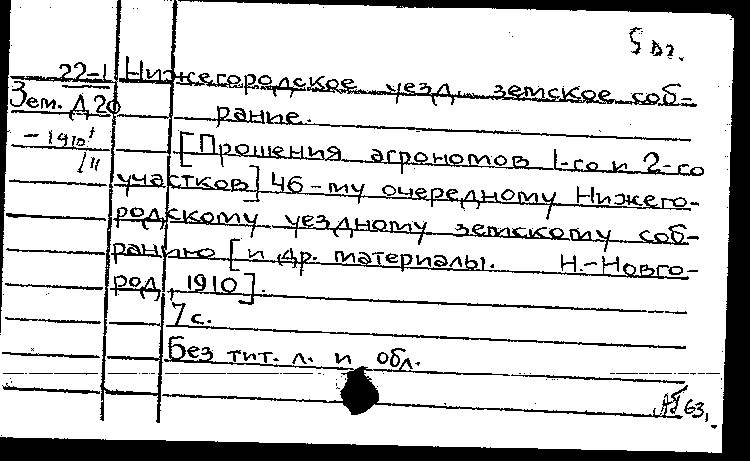 5 вг.
22-1 Нижегородское уезд. земское соб-
Зем. Д 20 рание.
-1910¹/11 [Прошения агрономов 1-го и 2-го
участков] 46-му очередному Нижего-
родскому уездному земскому соб-
ранию [и др. материалы. Н.-Новго-
род, 1910].
7 с.
Без тит. л. и обл.
63.